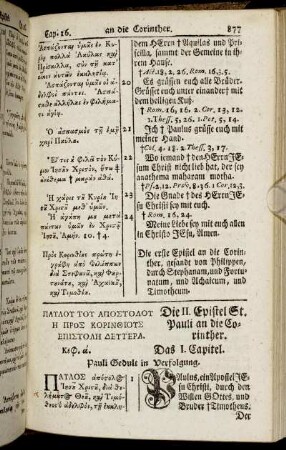 Cap. 16. an die Corinther. 877
Ἀσπάζονται ὑμᾶς ἐν Κυ-
ρίῳ πολλὰ Ἀκύλας καὶ
Πρίσκιλλα, σὺν τῇ κατ'
οἶκον αὐτῶν ἐκκλησίᾳ.
Ἀσπάζονται ὑμᾶς οἱ ἀ-
δελφοὶ πάντες. Ἀσπάσα-
σθε ἀλλήλους ἐν φιλήμα-
τι ἁγίῳ.
Ὁ ἀσπασμὸς τῇ ἐμῇ
χειρὶ Παύλου.
Εἴ τις ἐ φιλεῖ τὸν Κύριον
Ἰησοῦν Χριστὸν, ἤτω ἀ-
νάθεμα † μαρὰν ἀθά.
Ἡ χάρις τοῦ Κυρίου Ἰησοῦ
Χριστοῦ μεθ' ὑμῶν.
Ἡ ἀγάπη μου μετὰ
πάντων ὑμῶν ἐν Χριστῷ
Ἰησοῦ, Ἀμήν.
Πρὸς Κορινθίους πρώτη ἐ-
γράφη ἀπὸ Φιλίππων
διὰ Στεφανᾶ, καὶ Φορτου-
νάτου, καὶ Ἀχαϊκοῦ, καὶ
Τιμοθέου.
dem HErrn † Aquilas und Pri-
scilla, sammt der Gemeine in ih-
rem Hause.
† Act. 18. 2, 26. Rom. 16. 3. 5.
20 Es grüssen euch alle Brüder.
Grüsset euch unter einander † mit
dem heiligen Kuß.
† Rom. 16, 16. 2. Cor. 13, 12.
1. Thess. 5, 26. 1. Pet. 5, 14.
21 Ich † Paulus grüsse euch mit
meiner Hand.
† Col. 4. 18. 2. Thess. 3. 17.
22 Wo iemand † den HErrn JE-
sum Christ nicht lieb hat, der sey
anathema maharam motha.
23 Die Gnade † des HErrn JE-
su Christi sey mit euch.
† Rom. 16, 24.
24 Meine Liebe sey mit euch allen
in Christo JEsu, Amen.
Die erste Epistel an die Corin-
ther, gesandt von Philippen,
durch Stephanam, und Fortu-
natum, und Achaicum, und
Timotheum.
ΠΑΥΛΟΥ ΤΟΥ ΑΠΟΣΤΟΛΟΥ
Η ΠΡΟΣ ΚΟΡΙΝΘΙΟΥΣ
ΕΠΙΣΤΟΛΗ ΔΕΥΤΕΡΑ.
Κεφ. ά.
Die II. Epistel St.
Pauli an die Co-
rinther.
Das I. Capitel.
Pauli Gedult in Verfolgung.
ΠΑΥΛΟΣ ἀπόστολος
Ἰησοῦ Χριστοῦ, διὰ θε-
λήματος Θεοῦ, καὶ Τιμό-
θεος ὁ ἀδελφὸς, τῇ ἐκκλησίᾳ
1 PAulus, ein Apostel JE-
su Christi, durch den
Willen GOttes, und
Bruder † Timotheus.
Der